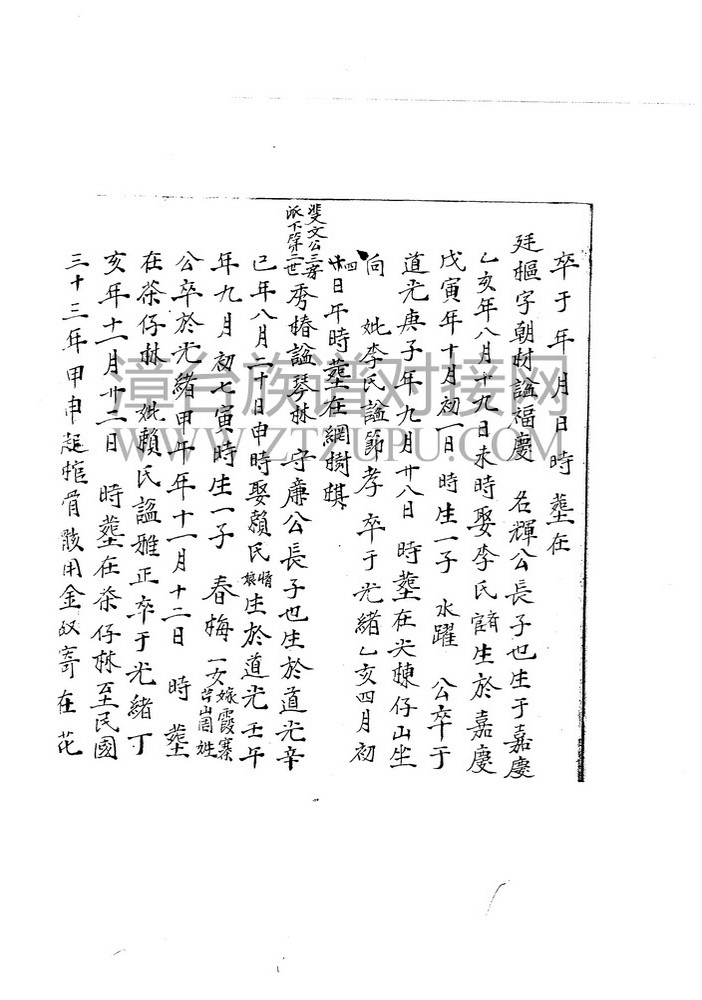 卒于年月日時塟在
廷樞字朝材諡福慶 名輝公長子也生于嘉慶
乙亥年八月十九日未時娶李氏 生於嘉慶
戊寅年十月初一日 時生一子 水躍 公卒于
道光庚子年九月廿八日 時塟在尖棟仔山坐
向 妣李氏諡節孝 卒于光緒乙亥四月初
廿四日午時塟在網樹椇
斐文公三房
派下第二世
秀椿諡琴林 守廉公長子也生於道光辛
巳年八月二十日申時娶賴氏 娘生於道光壬午
年九月初七寅時生一子 春梅 一女嫁霞寨
 山 姓
公卒於光緒甲午年十一月十二日 時 塟
在茶仔林 妣賴氏諡雅正卒于光緒丁
亥年十一月廿二日 時塟在茶仔林至民國
三十三年甲申起 骨骸用金 寄在花
漳台族谱对接网
WWW.ZTZUPU.COM